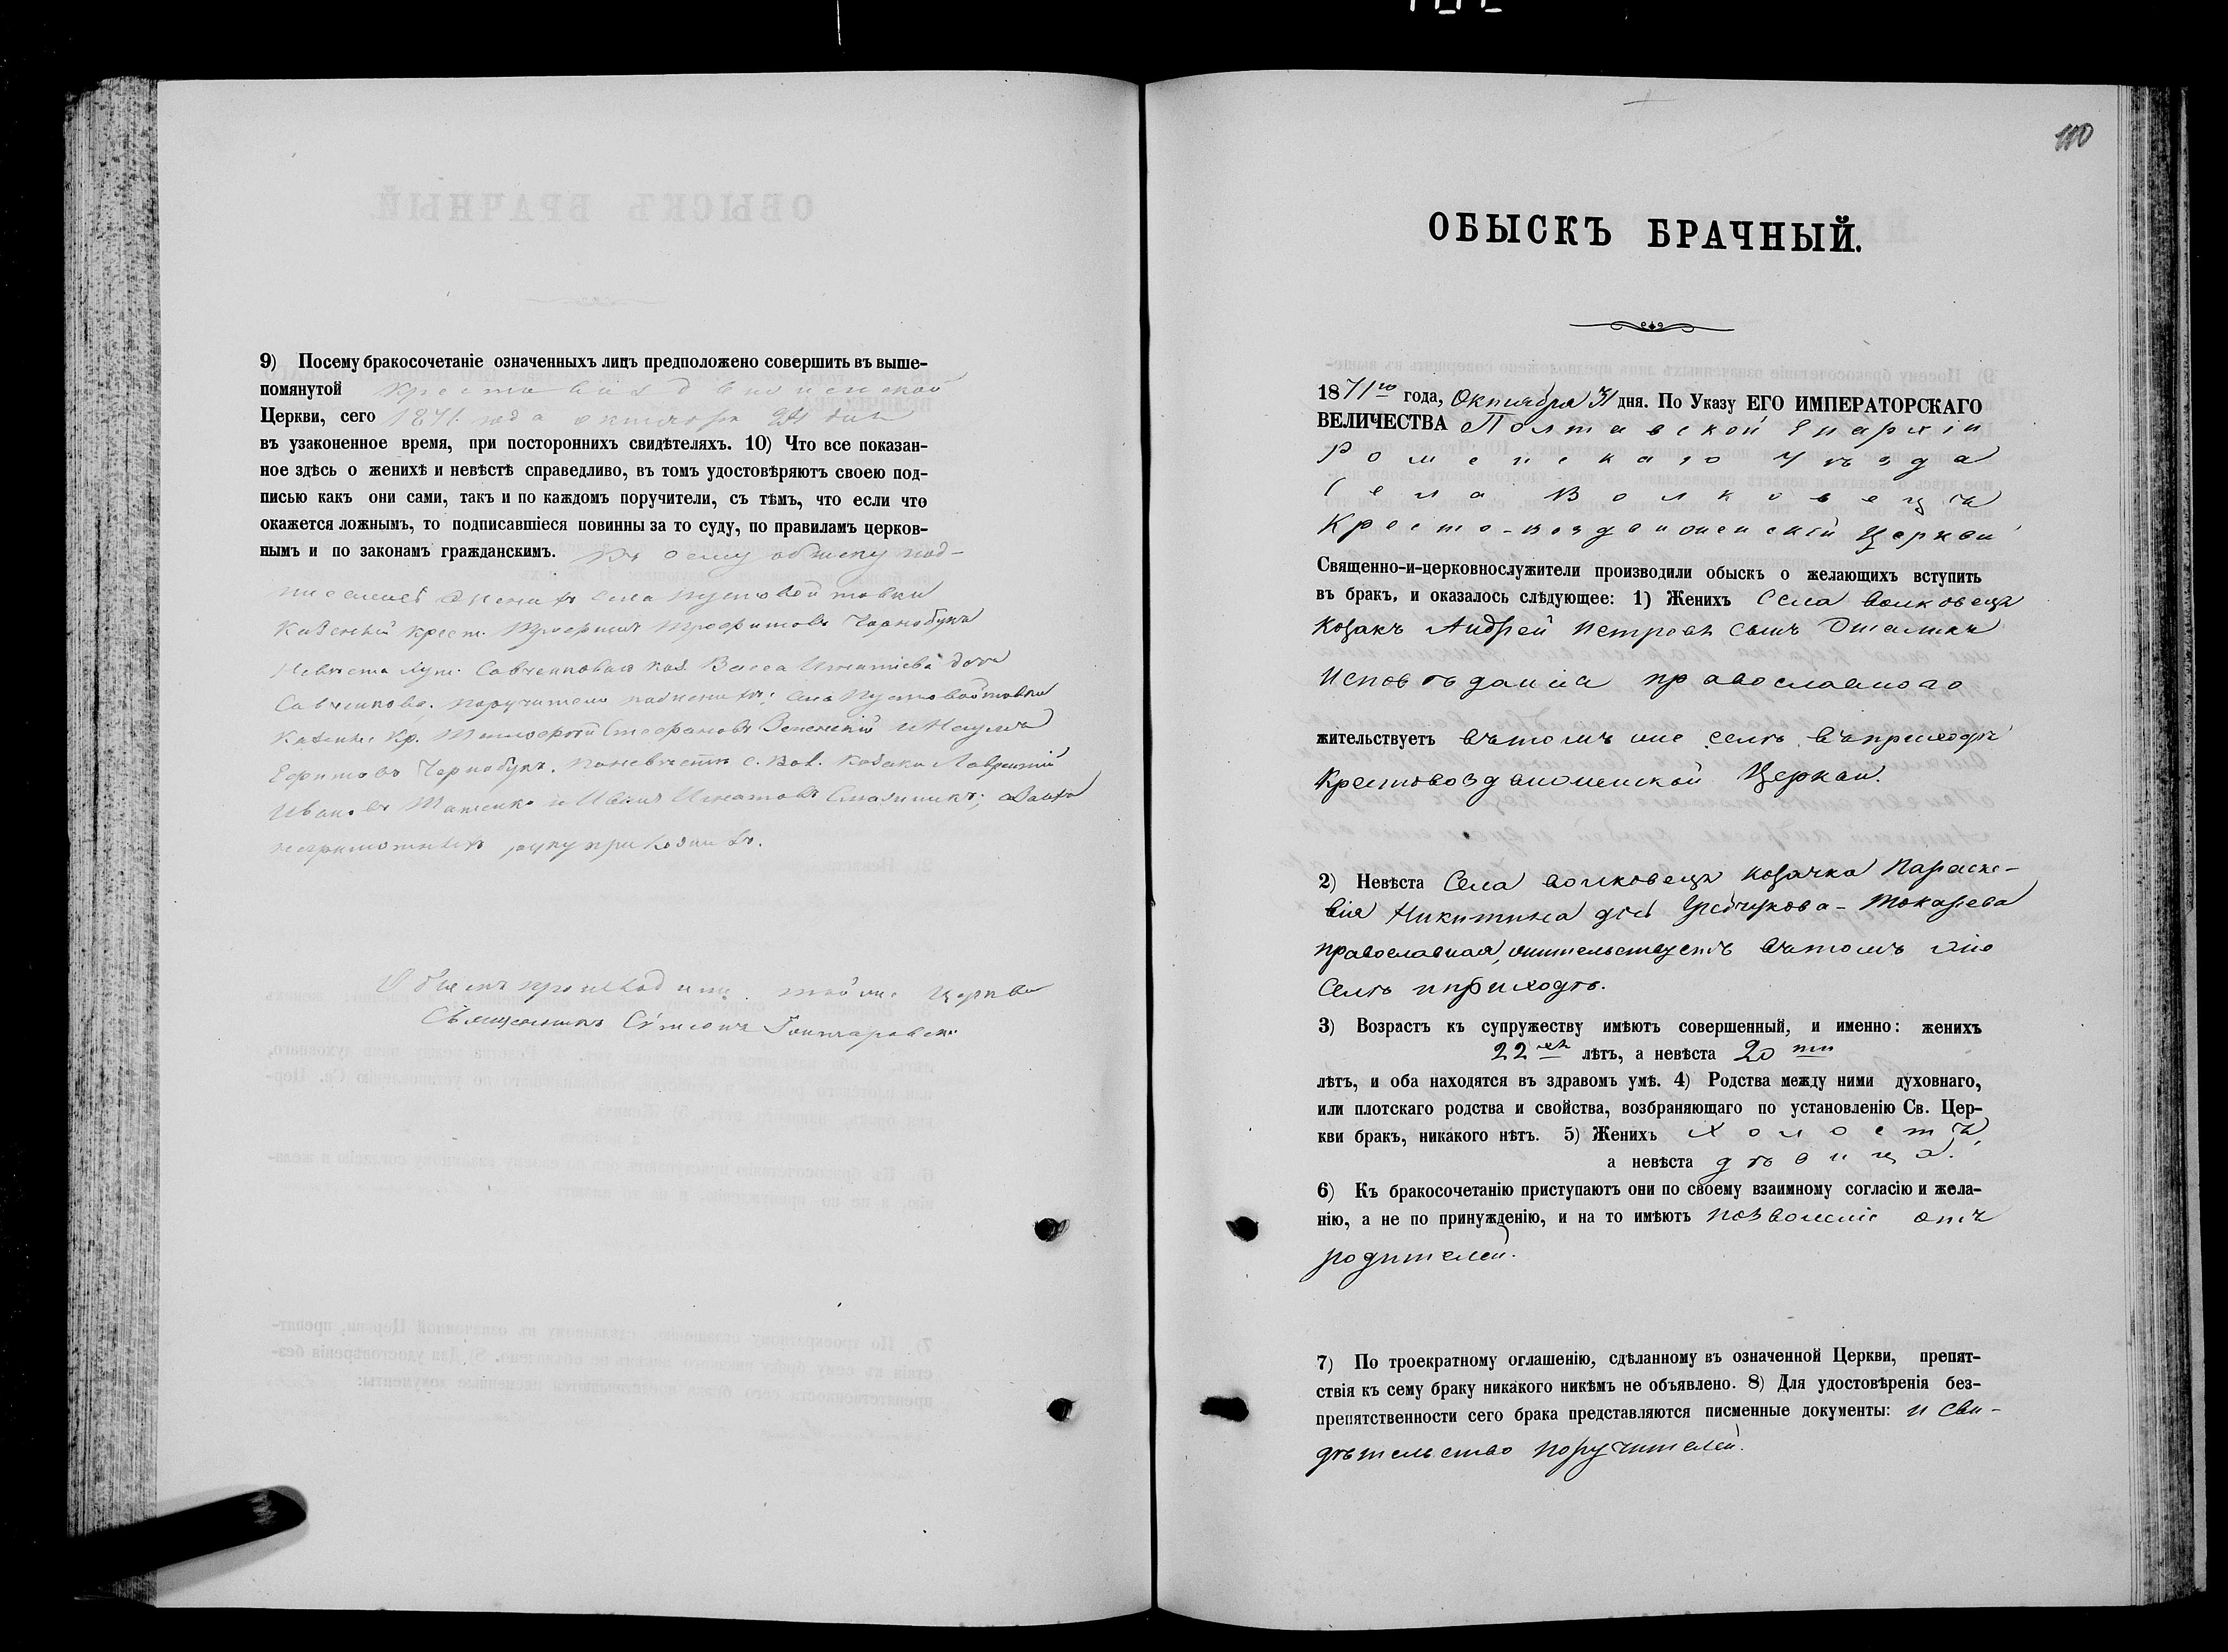 9) Посему бракосочетаніе означенныхъ лицъ предположено совершить въ выше-
помянутой Крестовоздвиженской
Церкви, сего 1871 года октября 24 дня
въ узаконенное время, при постороннихъ свидѣтеляхъ. 10) Что все показан-
ное здѣсь о женихѣ и невѣстѣ справедливо, въ томъ удостовѣряютъ своею под-
писью какъ они сами, такъ и по каждомъ поручители, съ тѣмъ, что если что
окажется ложнымъ, то подписавшіеся повинны за то суду, по правиламъ церков-
нымъ и по законамъ гражданскимъ. Къ сему обыску под-
женихъ села Пустовойтовки
крест. Трофимъ Трофимовъ Чорнобукъ
Невѣста Савченковая каз. Васса Игнатіева дочь
Савченкова. поручители по женихѣ: села Пустовойтовки
Кр. Тимофей Стефановъ и Наумъ
Ефимовъ Чернобукъ. По невѣстѣ с. Вол. козаки Лаврентій
Ивановъ и Иванъ Игнатовъ
неграмотныхъ руку приложилъ.
Обыскъ производилъ тойже Церкви
Священникъ Сѵмеонъ
110
ОБЫСКЪ БРАЧНЫЙ.
1871го года, Октября 31 дня. По Указу ЕГО ИМПЕРАТОРСКАГО
ВЕЛИЧЕСТВА Полтавской Епархіи
Роменскаго Уѣзда
Села Волковецъ
Кресто-воздвиженской Церкви
Священно-и-церковнослужители производили обыскъ о желающихъ вступить
въ бракъ, и оказалось слѣдующее: 1) Женихъ Села Волковецъ
Козакъ Андрей Петровъ сынъ
Исповѣданія православнаго
жительствуетъ въ томъ же селѣ въ приходѣ
Крестовоздвиженской Церкви.
2) Невѣста Села Волковецъ козачка Параске-
вія Никитина дочь Токарева
православная, жительствуетъ въ томъ же
Селѣ и приходѣ.
3) Возрастъ къ супружеству имѣютъ совершенный, и именно: женихъ
22хъ лѣтъ, а невѣста 20ти
лѣтъ, и оба находятся въ здравомъ умѣ. 4) Родства между ними духовнаго,
или плотскаго родства и свойства, возбраняющаго по установленію Св. Цер-
кви бракъ, никакого нѣтъ. 5) Женихъ Холостъ,
а невѣста дѣвица.
6) Къ бракосочетанію приступаютъ они по своему взаимному согласію и жела-
нію, а не по принужденію, и на то имѣютъ позволеніе отъ
родителей.
7) По троекратному оглашенію, сдѣланному въ означенной Церкви, препят-
ствія къ сему браку никакого никѣмъ не объявлено. 8) Для удостовѣренія без-
препятственности сего брака представляются писменные документы: и сви-
дѣтельство поручителей.